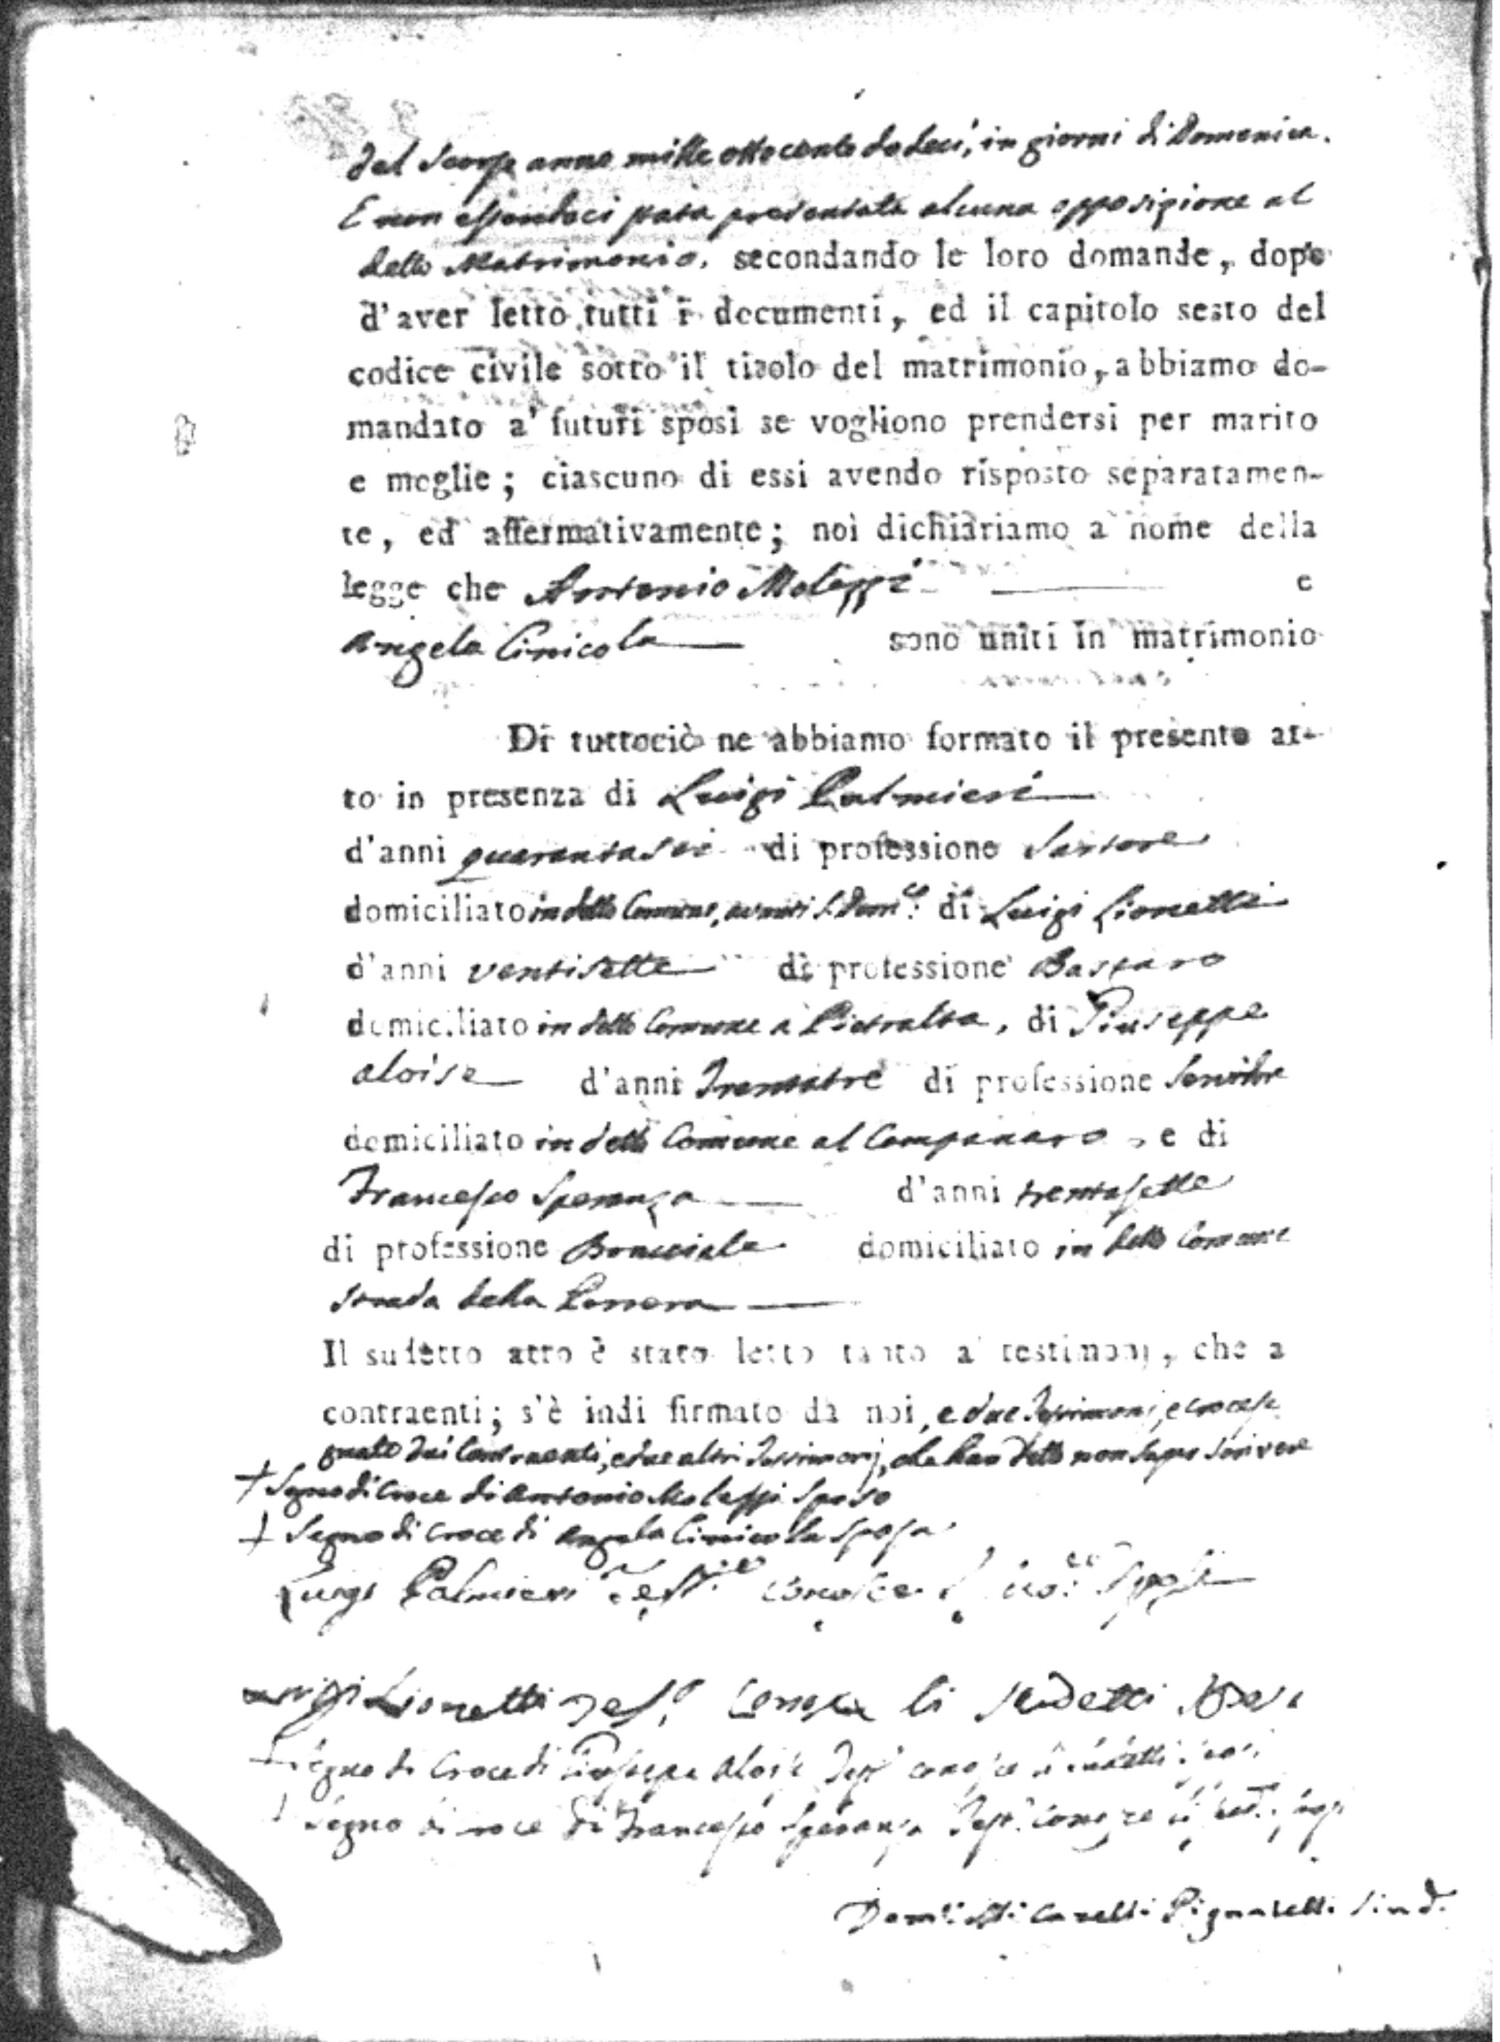 del scorso anno mille ottocento dodeci, in giorni di Domenica.
E non essendoci stata presentata alcuna opposizione al
detto Matrimonio, secondando le loro domande, dopo
d'aver letto tutti i documenti, ed il capitolo sesto del
codice civile sotto il titolo del matrimonio, abbiamo do-
mandato a' futuri sposi se vogliono prendersi per marito
e moglie; ciascuno di essi avendo risposto separatamen-
te, ed affermativamente; noi dichiariamo a nome della
legge che Antonio Molezzi e
Angela Cinicola sono uniti in matrimonio
Di tuttociò ne abbiamo formato il presente at-
to in presenza di Luigi Palmieri
d'anni quarantasei di professione Sartore
domiciliato in detto Comune, avanti S. Dom.co di Luigi Lionetti
d'anni ventisette di professione Bastaro
domiciliato in detto Comune a Pietralta, di Giuseppe
Aloise d'anni Trentatrè di professione Servitore
domiciliato in detto Comune al Campanaro, e di
Francesco Speranza d'anni trentasette
di professione Bracciale domiciliato in detto Comune
strada della
Il sudetto atto è stato letto tanto a' testimonj, che a
contraenti; s'è indi firmato da noi, e due Testimonj, e croce se-
gnato dai Contraenti, e due altri Testimonj, che han detto non saper scrivere
+ Segno di Croce di Antonio Molezzi Sposo
+ Segno di croce di Angela Cinicola Sposa
Luigi Palmieri Test.e conosce Sposi
Luigi Lionetti Tes.o conosce li sudetti Sposi
+ Segno di Croce di Giuseppe Aloise Test. conosce i sudetti sposi
+ Segno di croce di Francesco Speranza Test. conosce
Carelli Pignatelli Sind.